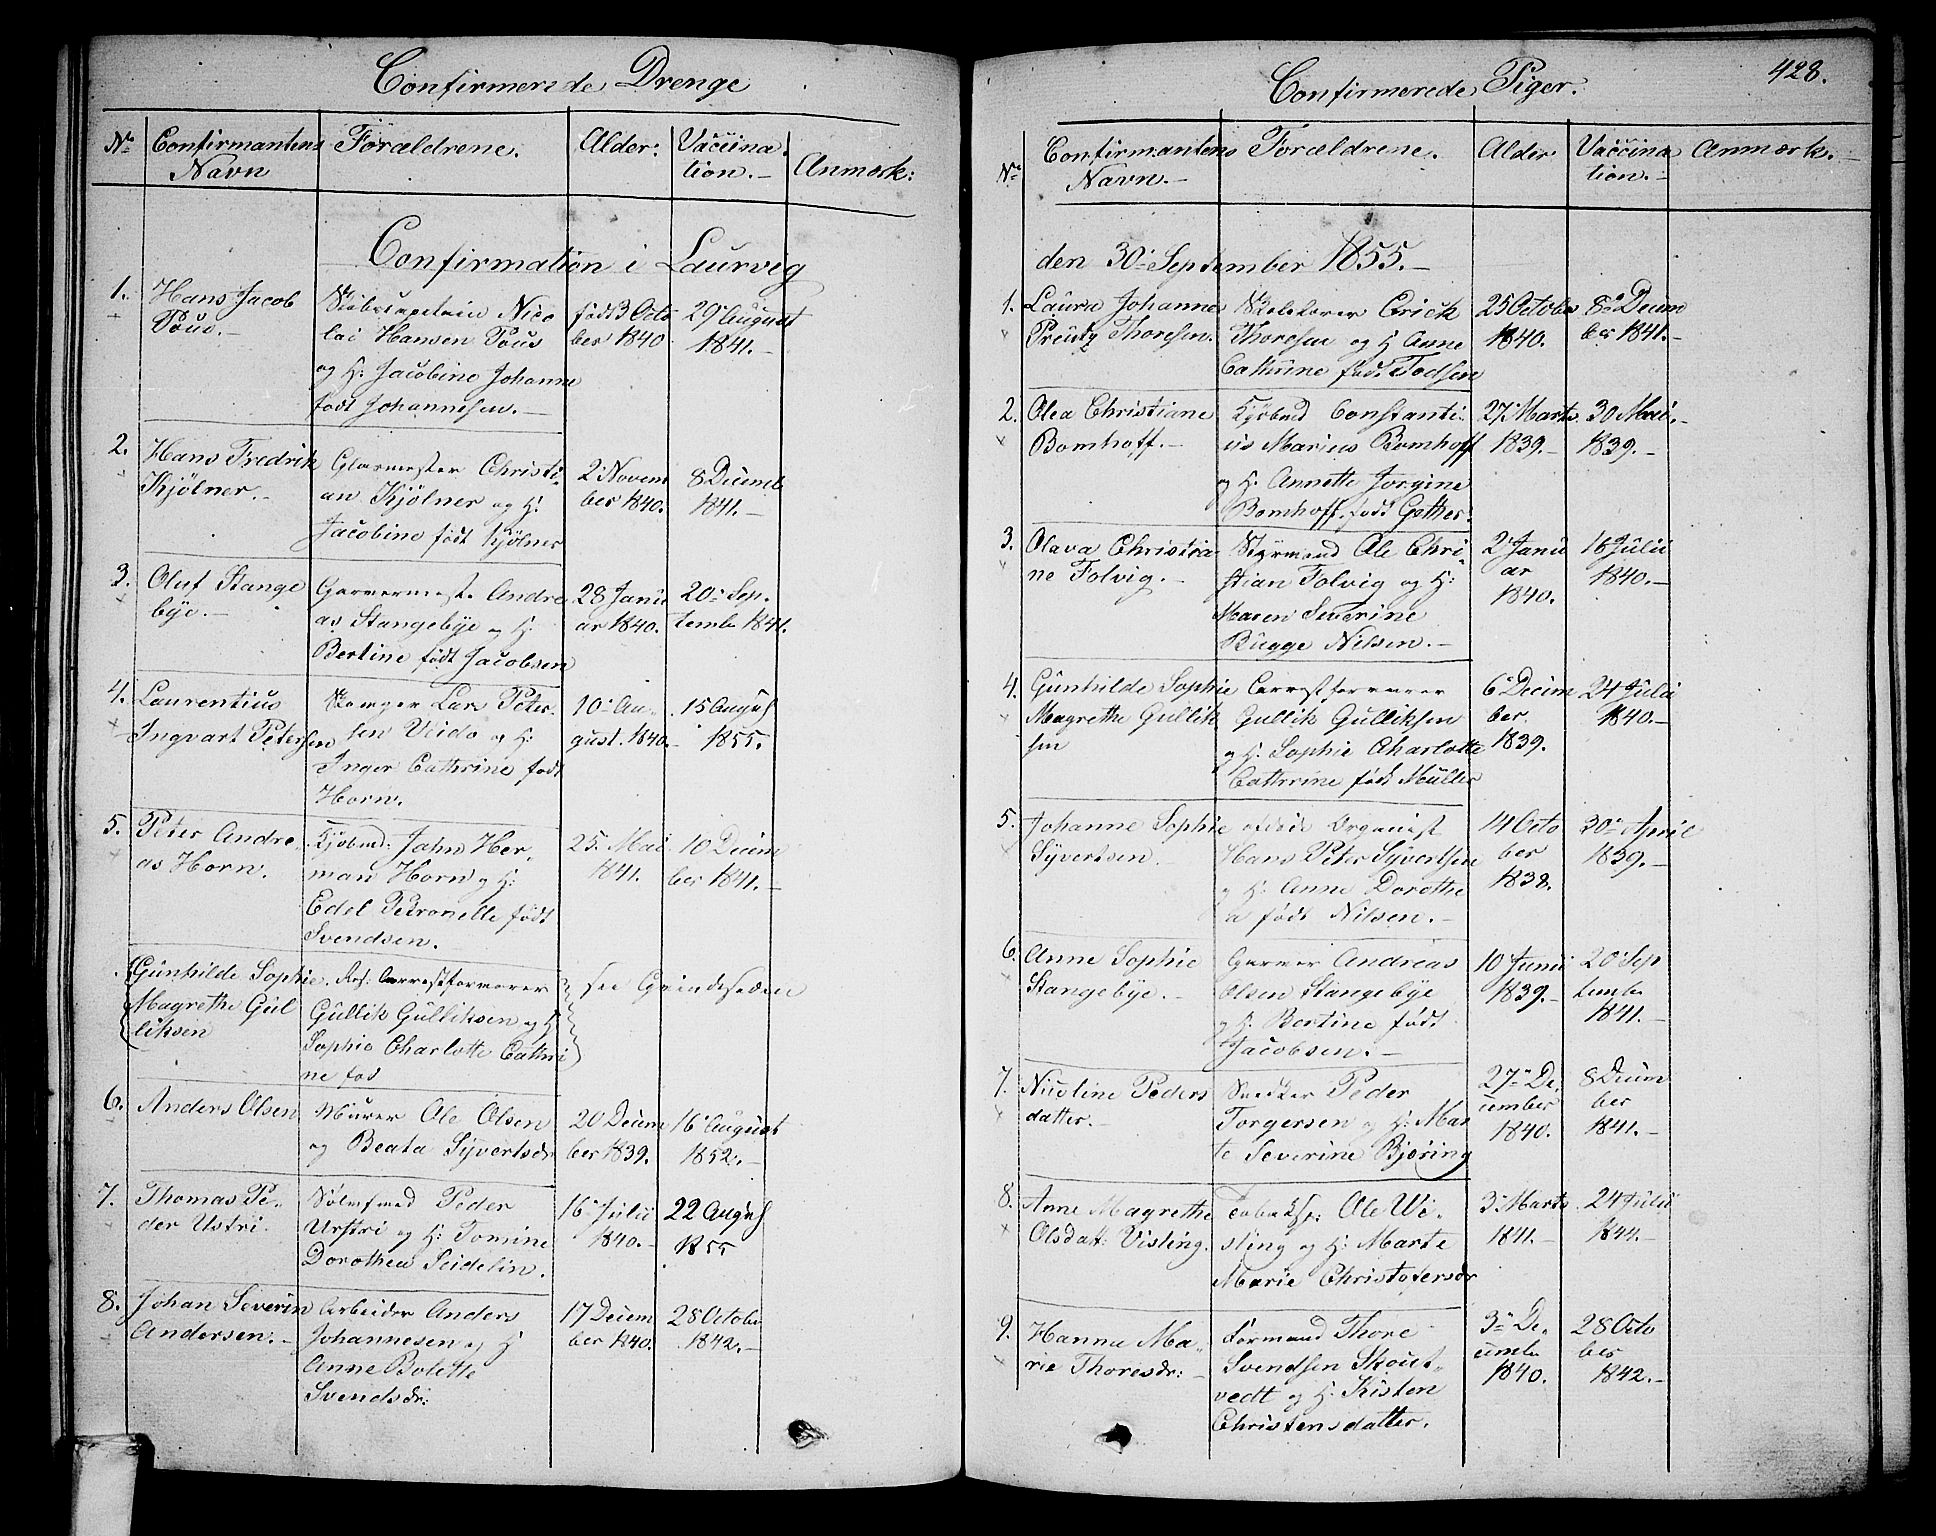 Confirmerede Drenge
No
Confirmantens
Navn
Forældrene.
Alder:
Vaccina
tion.-
Anmærk:
Confirmation i Laurvig
1.
Hans Jacob
Tous.-
Skibscaptein Nico
lai Hansen Tous
og H: Jacobine Johanne
født Johannesen.-
født 3 Octo
ber 1840
29 August
1841.-
2.
Hans Fredrik
Kjölner.-
Glarmester Christi
an Kjölner og H:
Jacobine født Kjölner
2 Novem
ber 1840.
8 Decemb
1841.-
3.
Oluf Stange
bye.-
Garvermest. Andre
as Stangebye og H:
Bertine født Jacobsen
28 Janu
ar 1840.
20 Sep.
tembr 1841.
4.
Laurentius
Ingvart Petersen
Lars Peter
sen og H:
Inger Cathrine født
Horn.
10 Au-
gust. 1840.-
15 August
1855.
5.
Peter Andre
as Horn.
Kjøbmd: John Her-
man Horn og H:
Edel Petronelle født
Svendsen.
25. Mai
1841.
10 Decem
ber 1841.-
Gunhilde Sophie
Magrethe Gul
liksen
Res: Arrestforvarer
Gullik Gulliksen og H
Sophie Charlotte Cathri
ne fød
see Qvindesiden
6.
Anders Olsen
Murer Ole Olsen
og Beata Syvertsdr
20 Decem
ber 1839.
16 August
1852.-
7.
Thomas Pe-
der Ustri.
Peder
Urstri og H: Tomine
Dorothea Seidelin.
16 Julii
1840.-
22 August
1855
8.
Johan Severin
Andersen.-
Arbeider Anders
Johannesen og H
Anne Bolette
Svendsdr:
17 Decem
ber 1840.
28 Octobr
1842.-
Confirmerede Piger.
428.
No
Confirmantens
Navn.-
Forældrene.
Alder
Vaccina
tion.-
Anmærk.-
den 30 September 1855.-
1.
Laura Johanne
Preutz Thoresen.
Skolelærer Erick
Thoresen og H Anne
Cathrine født Todsen
25 October
1840.
8 Decem
ber 1841.-
2.
Olea Christiane
Bomhoff.-
Kjøbmd Constanti-
us Marius Bomhoff
og H: Annette Jorgine
Bomhoff født Gether.
27 Marts
1839.-
30 Mai.-
1839.-
3.
Olava Christia-
ne Folvig.-
Styrmand Ole Chri-
stian Folvig og H:
Maren Severine
Bugge Nilsen.-
2 Janu
ar
1840.
16 Julii
1840.-
4.
Gunhilde Sophie
Magrethe Gullik
sen
Arrestforvarer
Gullik Gulliksen
og H. Sophie Charlotte
Cathrine født Müller
6 Decem
ber
1839.
24 Julii
1840.-
5.
Johanne Sophie
Syvertsen.
afdøde Organist
Hans Peter Syvertsen
og H: Anne Dorothe
a født Nilsen.-
14 Octo
ber
1838.
30 April
1839.-
6.
Anne Sophie
Stangebye.-
Garver Andreas
Olsen Stangebye
og H. Bertine født
Jacobsen.-
10 Junii
1839.-
20 Sep
tembr
1841.-
7.
Nicoline Peders
datter.-
Snedker Peder
Torgersen og H: Mar
te Severine Bjøring
27 De
cember
1840.
8 Decem
ber
1841.-
8.
Anne Magrethe
Olsdatt: Visling.
Tobaksp: Ole Wi-
sling og H: Marte
Marie Christofersdr
3 Marts
1841.-
24 Julii
1844.-
9.
Hanna Ma-
rie Thoresdr:-
Formand Thore
Svendsen Skout-
vedt og H: Kisten
Christensdatter.
3 De-
cembr
1840.
28 Octo
ber
1842.-